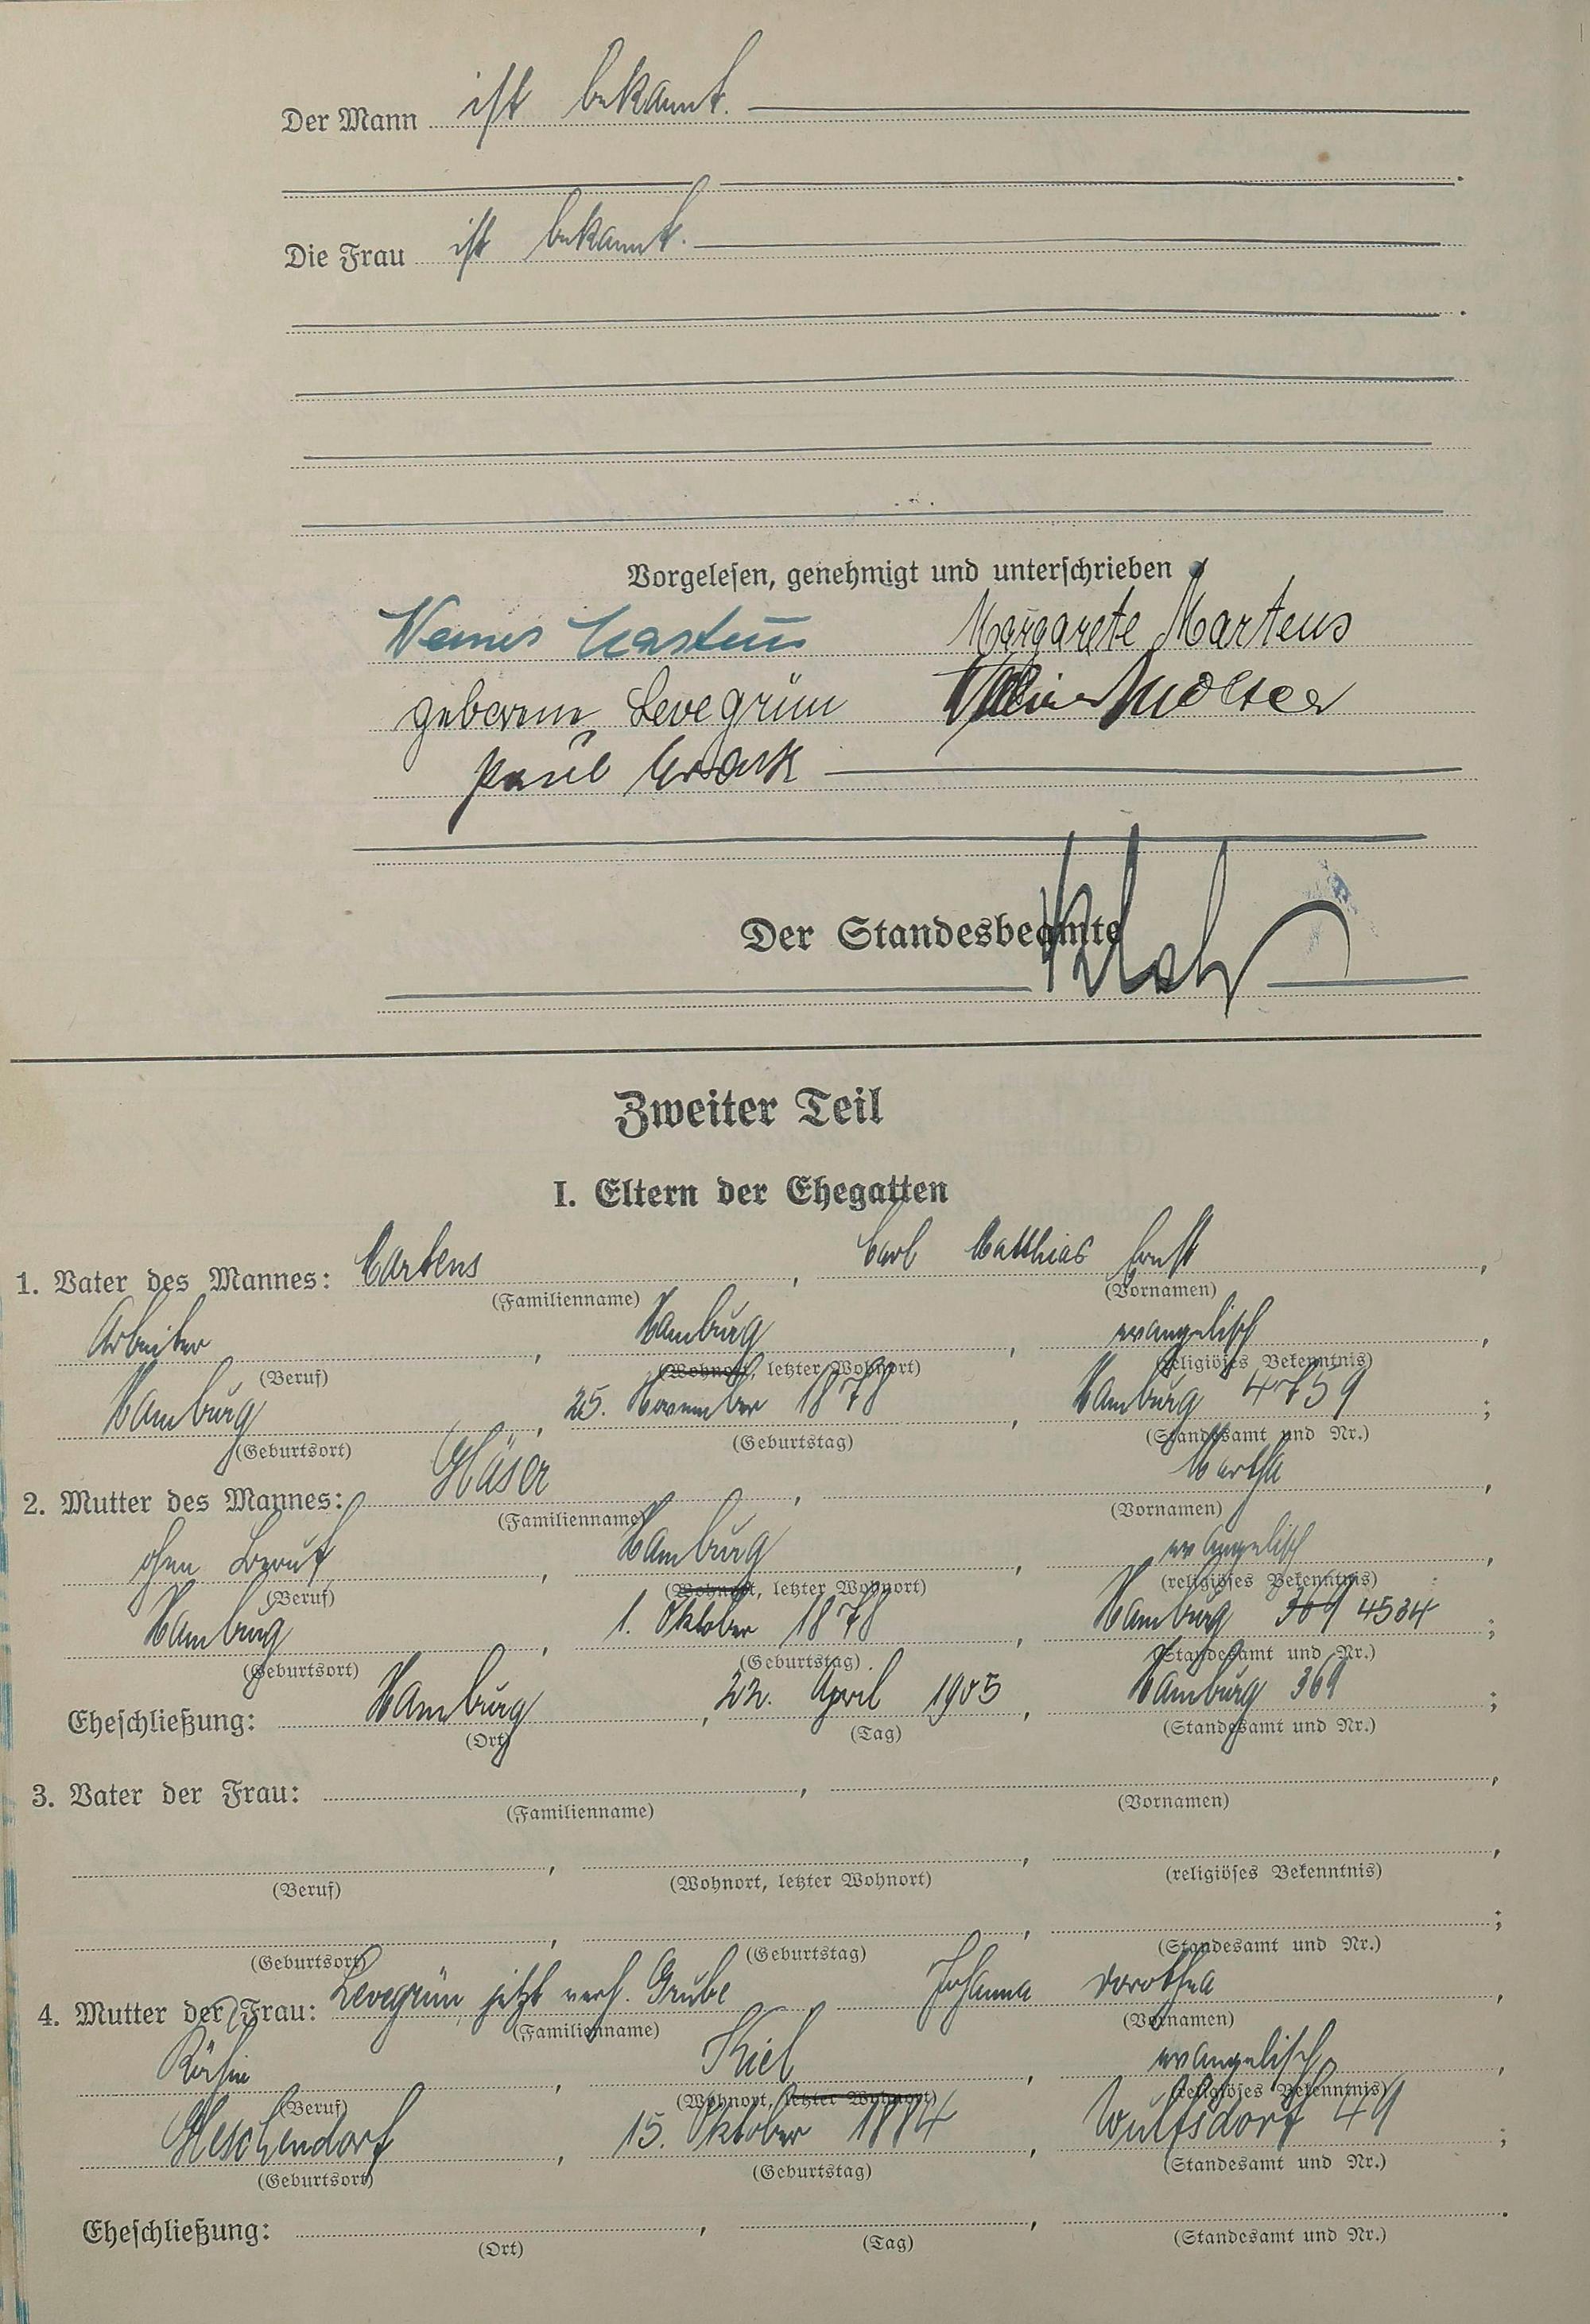 Der Mann ist bekannt.
Die Frau ist bekannt.
Vorgelesen, genehmigt und unterschrieben
Werner Martens Margarete Martens
geborene Levegrün
Paul
Der Standesbeamte
Zweiter Teil
I. Eltern der Ehegatten
1. Vater des Mannes: Martens, Carl Matthias Ernst,
(Familienname) (Vornamen)
Arbeiter, Hamburg, evangelisch,
(Beruf) (Wohnort, letzter Wohnort) (religiöses Bekenntnis)
Hamburg, 25. November 1878, Hamburg 4759;
(Geburtsort) (Geburtstag) (Standesamt und Nr.)
2. Mutter des Mannes: Gläser, Martha,
(Familienname) (Vornamen)
ohne Beruf, Hamburg, evangelisch,
(Beruf) (Wohnort, letzter Wohnort) (religiöses Bekenntnis)
Hamburg, 1. Oktober 1878, Hamburg 369 4534;
(Geburtsort) (Geburtstag) (Standesamt und Nr.)
Eheschließung: Hamburg, 22. April 1905, Hamburg 369;
(Ort) (Tag) (Standesamt und Nr.)
3. Vater der Frau: , ,
(Familienname) (Vornamen)
, , ,
(Beruf) (Wohnort, letzter Wohnort) (religiöses Bekenntnis)
, , ;
(Geburtsort) (Geburtstag) (Standesamt und Nr.)
4. Mutter der Frau: Levegrün, jetzt verh. Grube, Johanna Dorothea,
(Familienname) (Vornamen)
Köchin, Kiel, evangelisch,
(Beruf) (Wohnort, letzter Wohnort) (religiöses Bekenntnis)
Gleschendorf, 15. Oktober 1884, Wulfsdorf 49;
(Geburtsort) (Geburtstag) (Standesamt und Nr.)
Eheschließung: , , .
(Ort) (Tag) (Standesamt und Nr.)